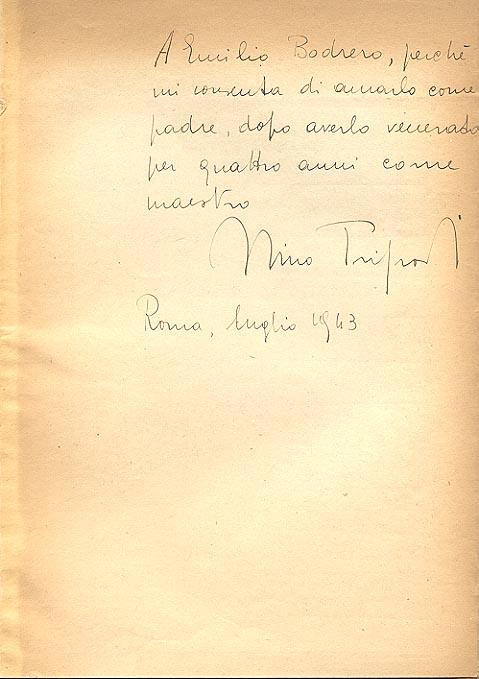 A Emilio Bodrero, perchè
mi consenta di amarlo come
padre, dopo averlo venerato
per quattro anni come
maestro
Nino Tripodi
Roma, luglio 1943